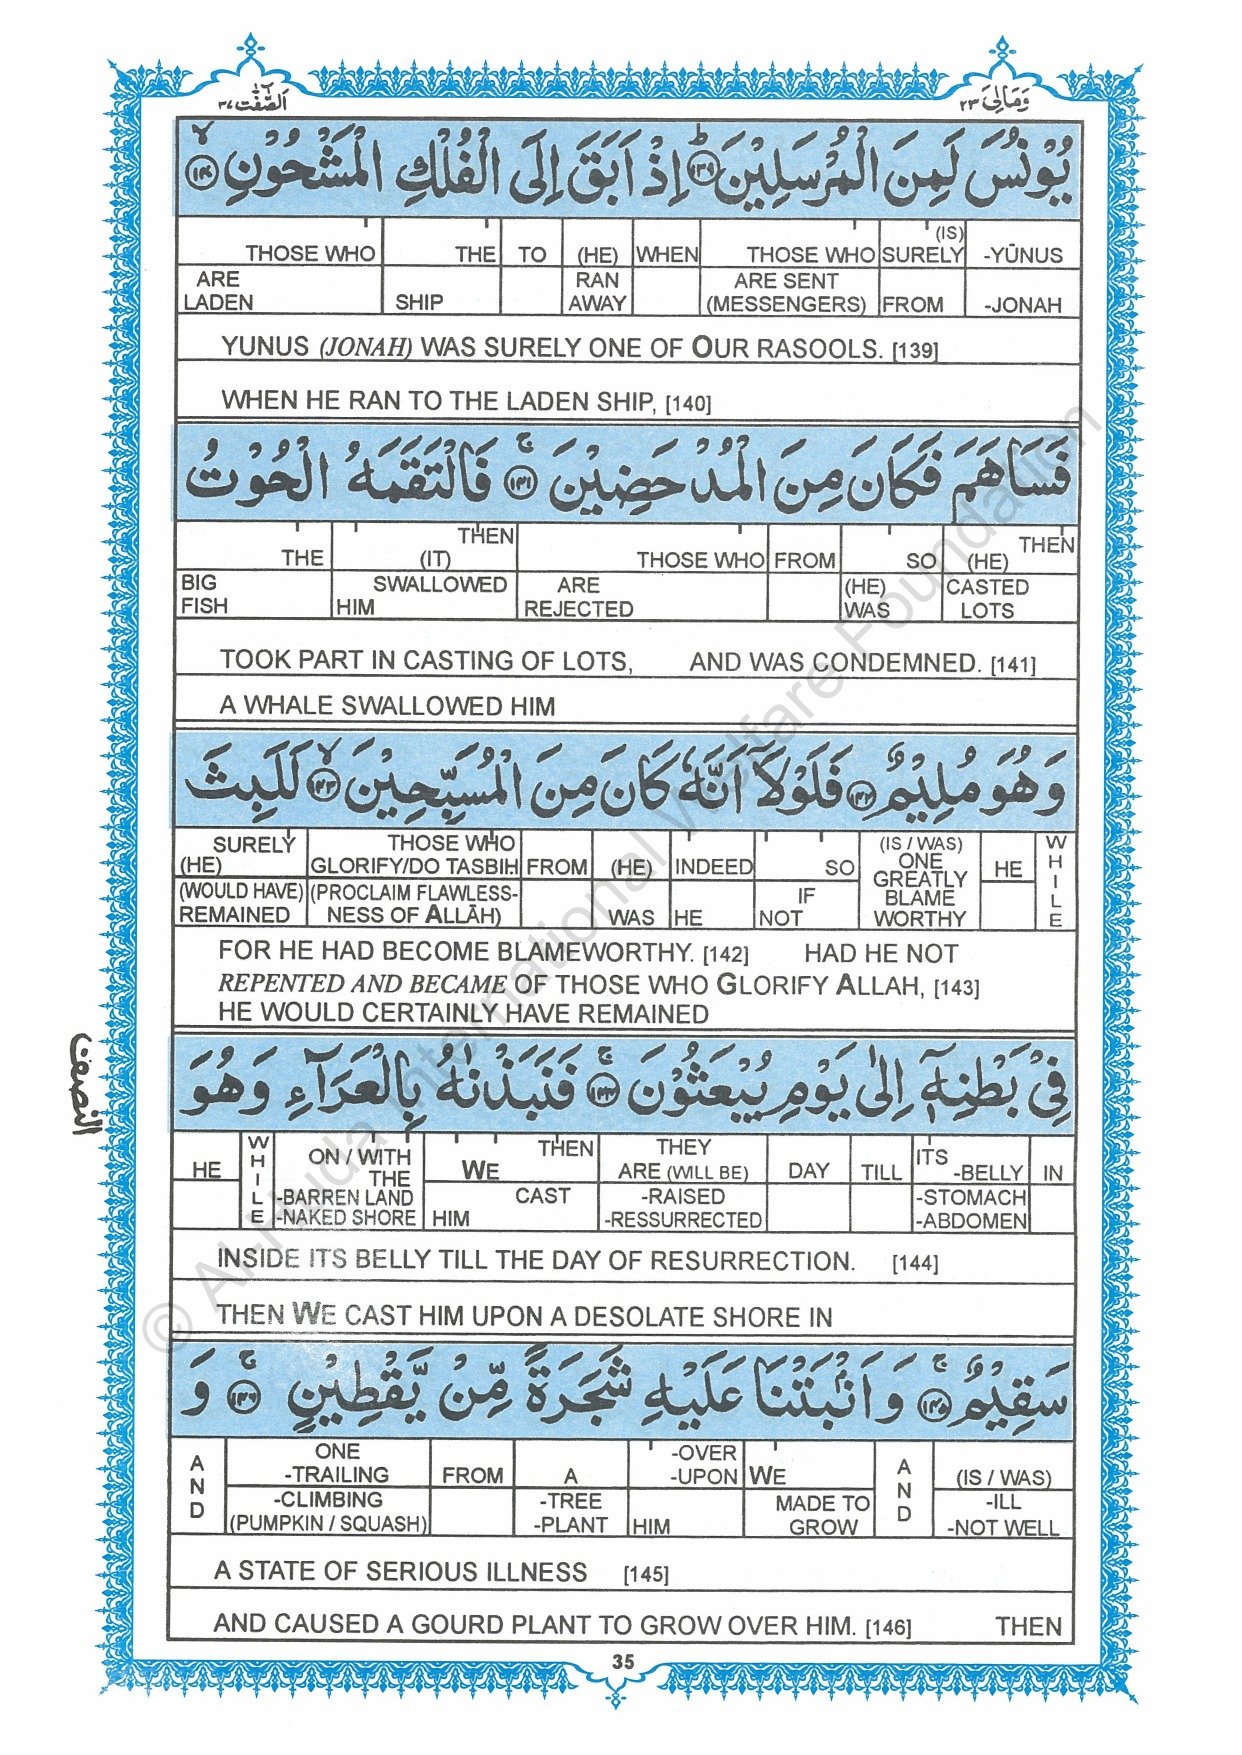 اَلصّٰٓفّٰت ٣٧
وَمَالِیَ ٢٣
يُوْنُسَ لَمِنَ الْمُرْسَلِيْنَ ۱۳۹ اِذْ اَبَقَ اِلَى الْفُلْكِ الْمَشْحُوْنِ ۱۴۰
THOSE WHO THE TO (HE) WHEN THOSE WHO (IS) SURELY -YŪNUS
ARE LADEN SHIP RAN AWAY ARE SENT (MESSENGERS) FROM -JONAH
YUNUS (JONAH) WAS SURELY ONE OF OUR RASOOLS. [139]
WHEN HE RAN TO THE LADEN SHIP, [140]
فَسَاهَمَ فَكَانَ مِنَ الْمُدْحَضِيْنَ ۱۴۱ فَالْتَقَمَهُ الْحُوْتُ
THE THEN (IT) THOSE WHO FROM SO THEN (HE)
BIG FISH SWALLOWED HIM ARE REJECTED (HE) WAS CASTED LOTS
TOOK PART IN CASTING OF LOTS, AND WAS CONDEMNED. [141]
A WHALE SWALLOWED HIM
وَهُوَ مُلِيْمٌ ۱۴۲ فَلَوْلَاۤ اَنَّهٗ كَانَ مِنَ الْمُسَبِّحِيْنَ ۱۴۳ لَلَبِثَ
SURELY (HE) THOSE WHO GLORIFY/DO TASBIH FROM (HE) INDEED SO (IS / WAS) ONE GREATLY BLAME WORTHY HE WHILE
(WOULD HAVE) REMAINED (PROCLAIM FLAWLESS-NESS OF ALLĀH) WAS HE IF NOT
FOR HE HAD BECOME BLAMEWORTHY. [142] HAD HE NOT
REPENTED AND BECAME OF THOSE WHO GLORIFY ALLAH, [143]
HE WOULD CERTAINLY HAVE REMAINED
النصف
فِيْ بَطْنِهٖۤ اِلٰى يَوْمِ يُبْعَثُوْنَ ۱۴۴ فَنَبَذْنٰهُ بِالْعَرَآءِ وَهُوَ
HE WHILE ON / WITH THE THEN WE THEY ARE (WILL BE) DAY TILL ITS -BELLY IN
-BARREN LAND -NAKED SHORE CAST HIM -RAISED -RESSURRECTED -STOMACH -ABDOMEN
INSIDE ITS BELLY TILL THE DAY OF RESURRECTION. [144]
THEN WE CAST HIM UPON A DESOLATE SHORE IN
سَقِيْمٌ ۱۴۵ وَاَنْۢبَتْنَا عَلَيْهِ شَجَرَةً مِّنْ يَّقْطِيْنٍ ۱۴۶ وَ
AND ONE -TRAILING FROM A -OVER -UPON WE AND (IS / WAS)
-CLIMBING (PUMPKIN / SQUASH) -TREE -PLANT HIM MADE TO GROW -ILL -NOT WELL
A STATE OF SERIOUS ILLNESS [145]
AND CAUSED A GOURD PLANT TO GROW OVER HIM. [146] THEN
35
© Al-Huda International Welfare Foundation